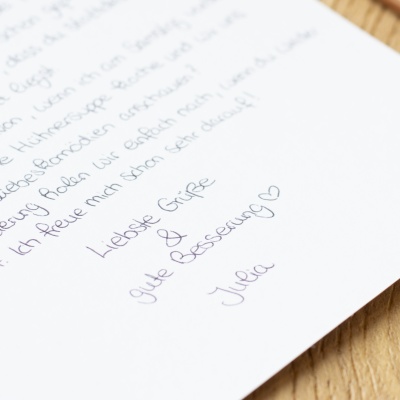 schon
, dass du
Angst
, wenn ich am Samstag
Hühnersuppe koche und wir uns
Liebeskomödien anschauen?
holen wir einfach nach, wenn du wieder
. Ich freue mich schon sehr darauf!
Liebste Grüße
&
gute Besserung ♡
Julia